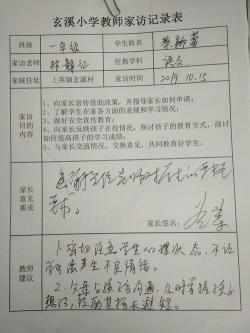 玄溪小学教师家访记录表
班级 一年级 学生姓名
家访老师 任教学科 语文
家庭住址 上英镇玄溪村 家访时间 2019.10.15
家访目的内容
1、向家长宣传资助政策，并指导家长如何申请；
2、了解学生在家各方面的表现和学习情况；
3、做好安全宣传教育；
4、向家长反映孩子在校情况，探讨孩子的教育方式，商讨如何提高孩子的学习成绩；
5、与家长交流情况，交换意见，共同教育好学生。
家长意见要求
家长签名：
教师建议
1、密切注意学生心理状态，不让
学生产生不良情绪。
2、父母与孩子沟通，及时掌握孩子
想法，鼓励其扬长避短。